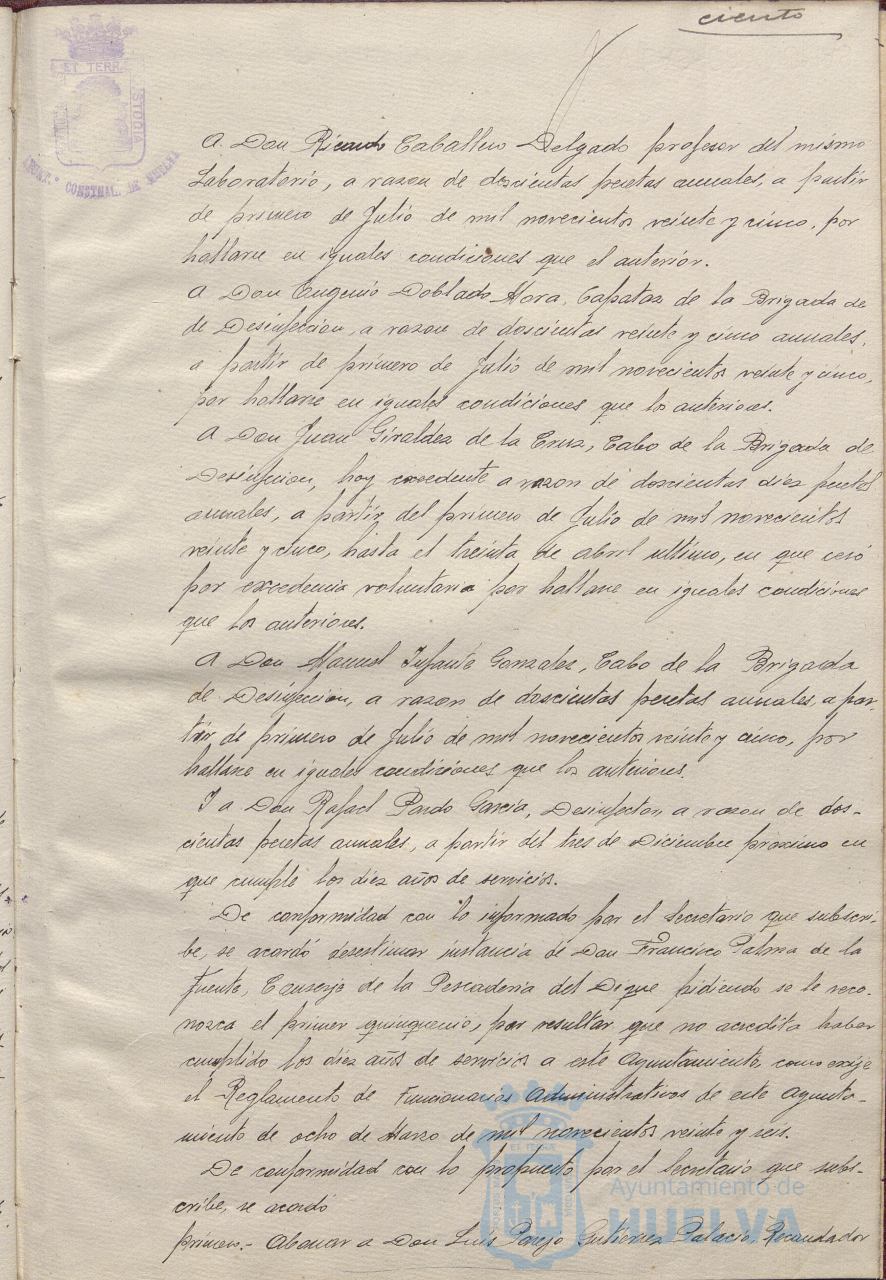 ciento
A Don Ricardo Caballero Delgado profesor del mismo
Laboratorio, a razon de doscientas pesetas anuales, a partir
de primero de Julio de mil novecientos veinte y cinco, por
hallarse en iguales condiciones que el anterior.
A Don Eugenio Doblado Mora, Capataz de la Brigada de
de Desinfeccion, a razon de doscientas veinte y cinco anuales,
a partir de primero de Julio de mil novecientos veinte y cinco,
por hallarse en iguales condiciones que los anteriores.
A Don Juan Giraldez de la Cruz, Cabo de la Brigada de
Desinfeccion, hoy excedente a razon de doscientas diez pesetas
anuales, a partir del primero de Julio de mil novecientos
veinte y cinco, hasta el treinta de abril ultimo, en que cesó
por excedencia voluntaria por hallarse en iguales condiciones
que los anteriores.
A Don Manuel Infante Gonzalez, Cabo de la Brigada
de Desinfeccion, a razon de doscientas pesetas anuales, a par-
tir de primero de Julio de mil novecientos veinte y cinco, por
hallarse en iguales condiciones que los anteriores.
Y a Don Rafael Pardo Garcia, Desinfector, a razon de dos-
cientas pesetas anuales, a partir del tres de Diciembre proximo en
que cumple los diez años de servicios.
De conformidad con lo informado por el Secretario que subscri-
be, se acordó desestimar instancia de Don Francisco Palma de la
Fuente, Conserje de la Pescaderia del Dique pidiendo se le reco-
nozca el primer quinquenio, por resultar que no acredita haber
cumplido los diez años de servicios a este Ayuntamiento, como exije
el Reglamento de Funcionarios Administrativos de este Ayunta-
miento de ocho de Marzo de mil novecientos veinte y seis.
De conformidad con lo propuesto por el Secretario que subs-
cribe, se acordó
Primero.- Abonar a Don Luis Parejo Gutierrez Palacio, Recaudador
Ayuntamiento de
HUELVA